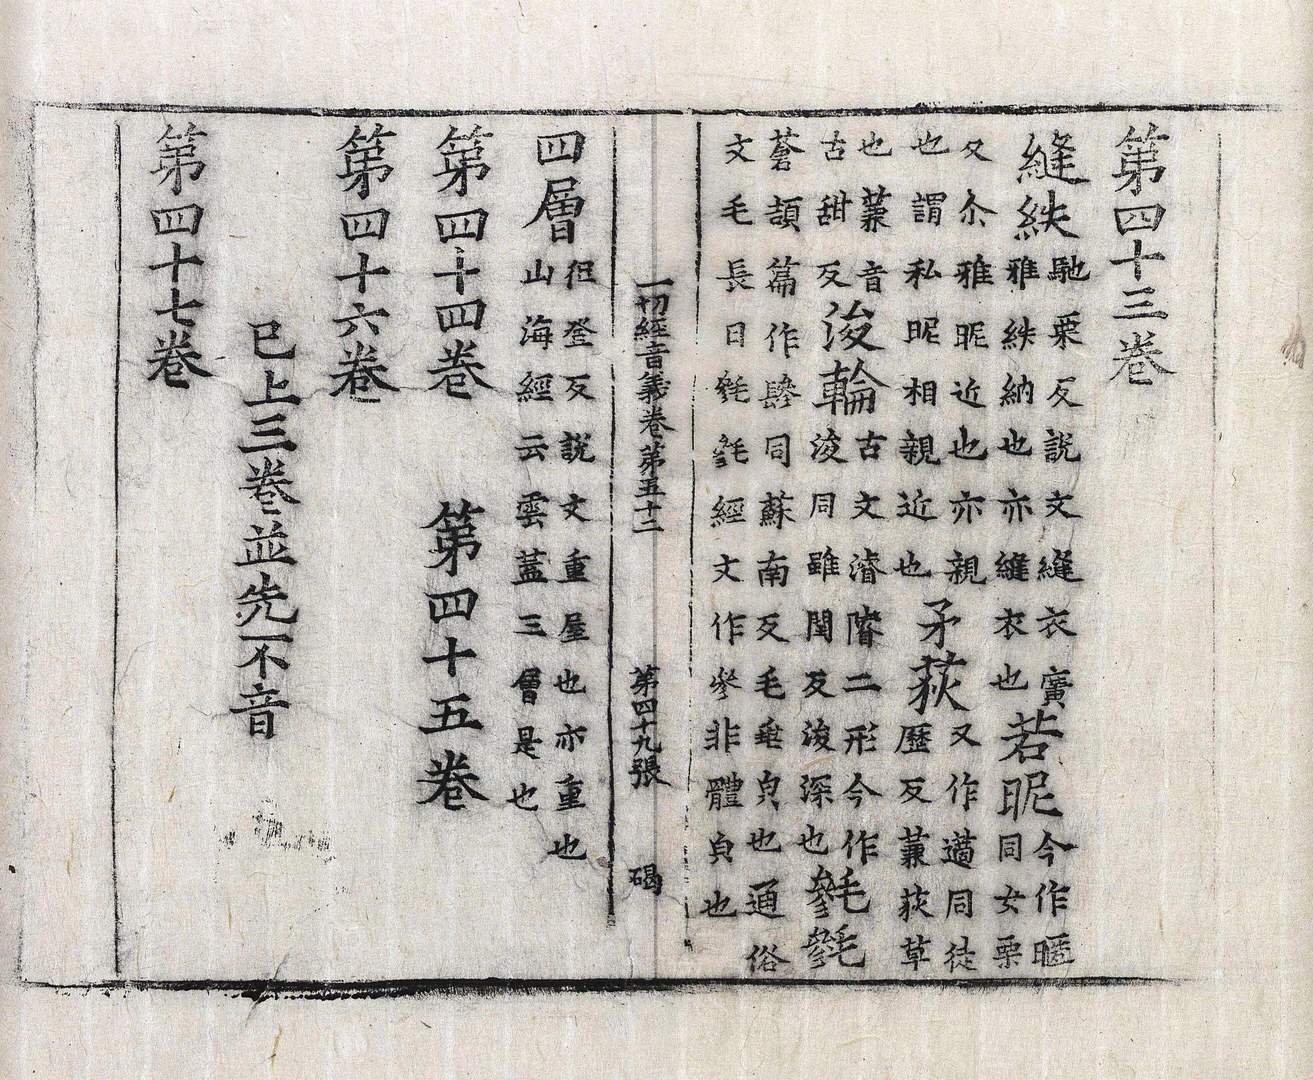 第四十三卷
縫紩馳栗反說文縫衣廣雅紩納也亦縫衣也若昵今作暱同女栗
又尒雅昵近也亦親也謂私昵相親近也矛荻又作藡同徒歷反蒹荻草
也蒹音古甜反浚輪古文濬二形今作浚同雖閏反浚深也毿毿
蒼頡篇作同蘇南反毛垂皃也通俗文毛長曰毿毿經文作參非體皃也
一切經音義卷第五十二 第四十九張 碣
四層徂登反說文重屋也亦重也山海經云雲蓋三層是也
第四十四卷 第四十五卷
第四十六卷
已上三卷並先不音
第四十七卷